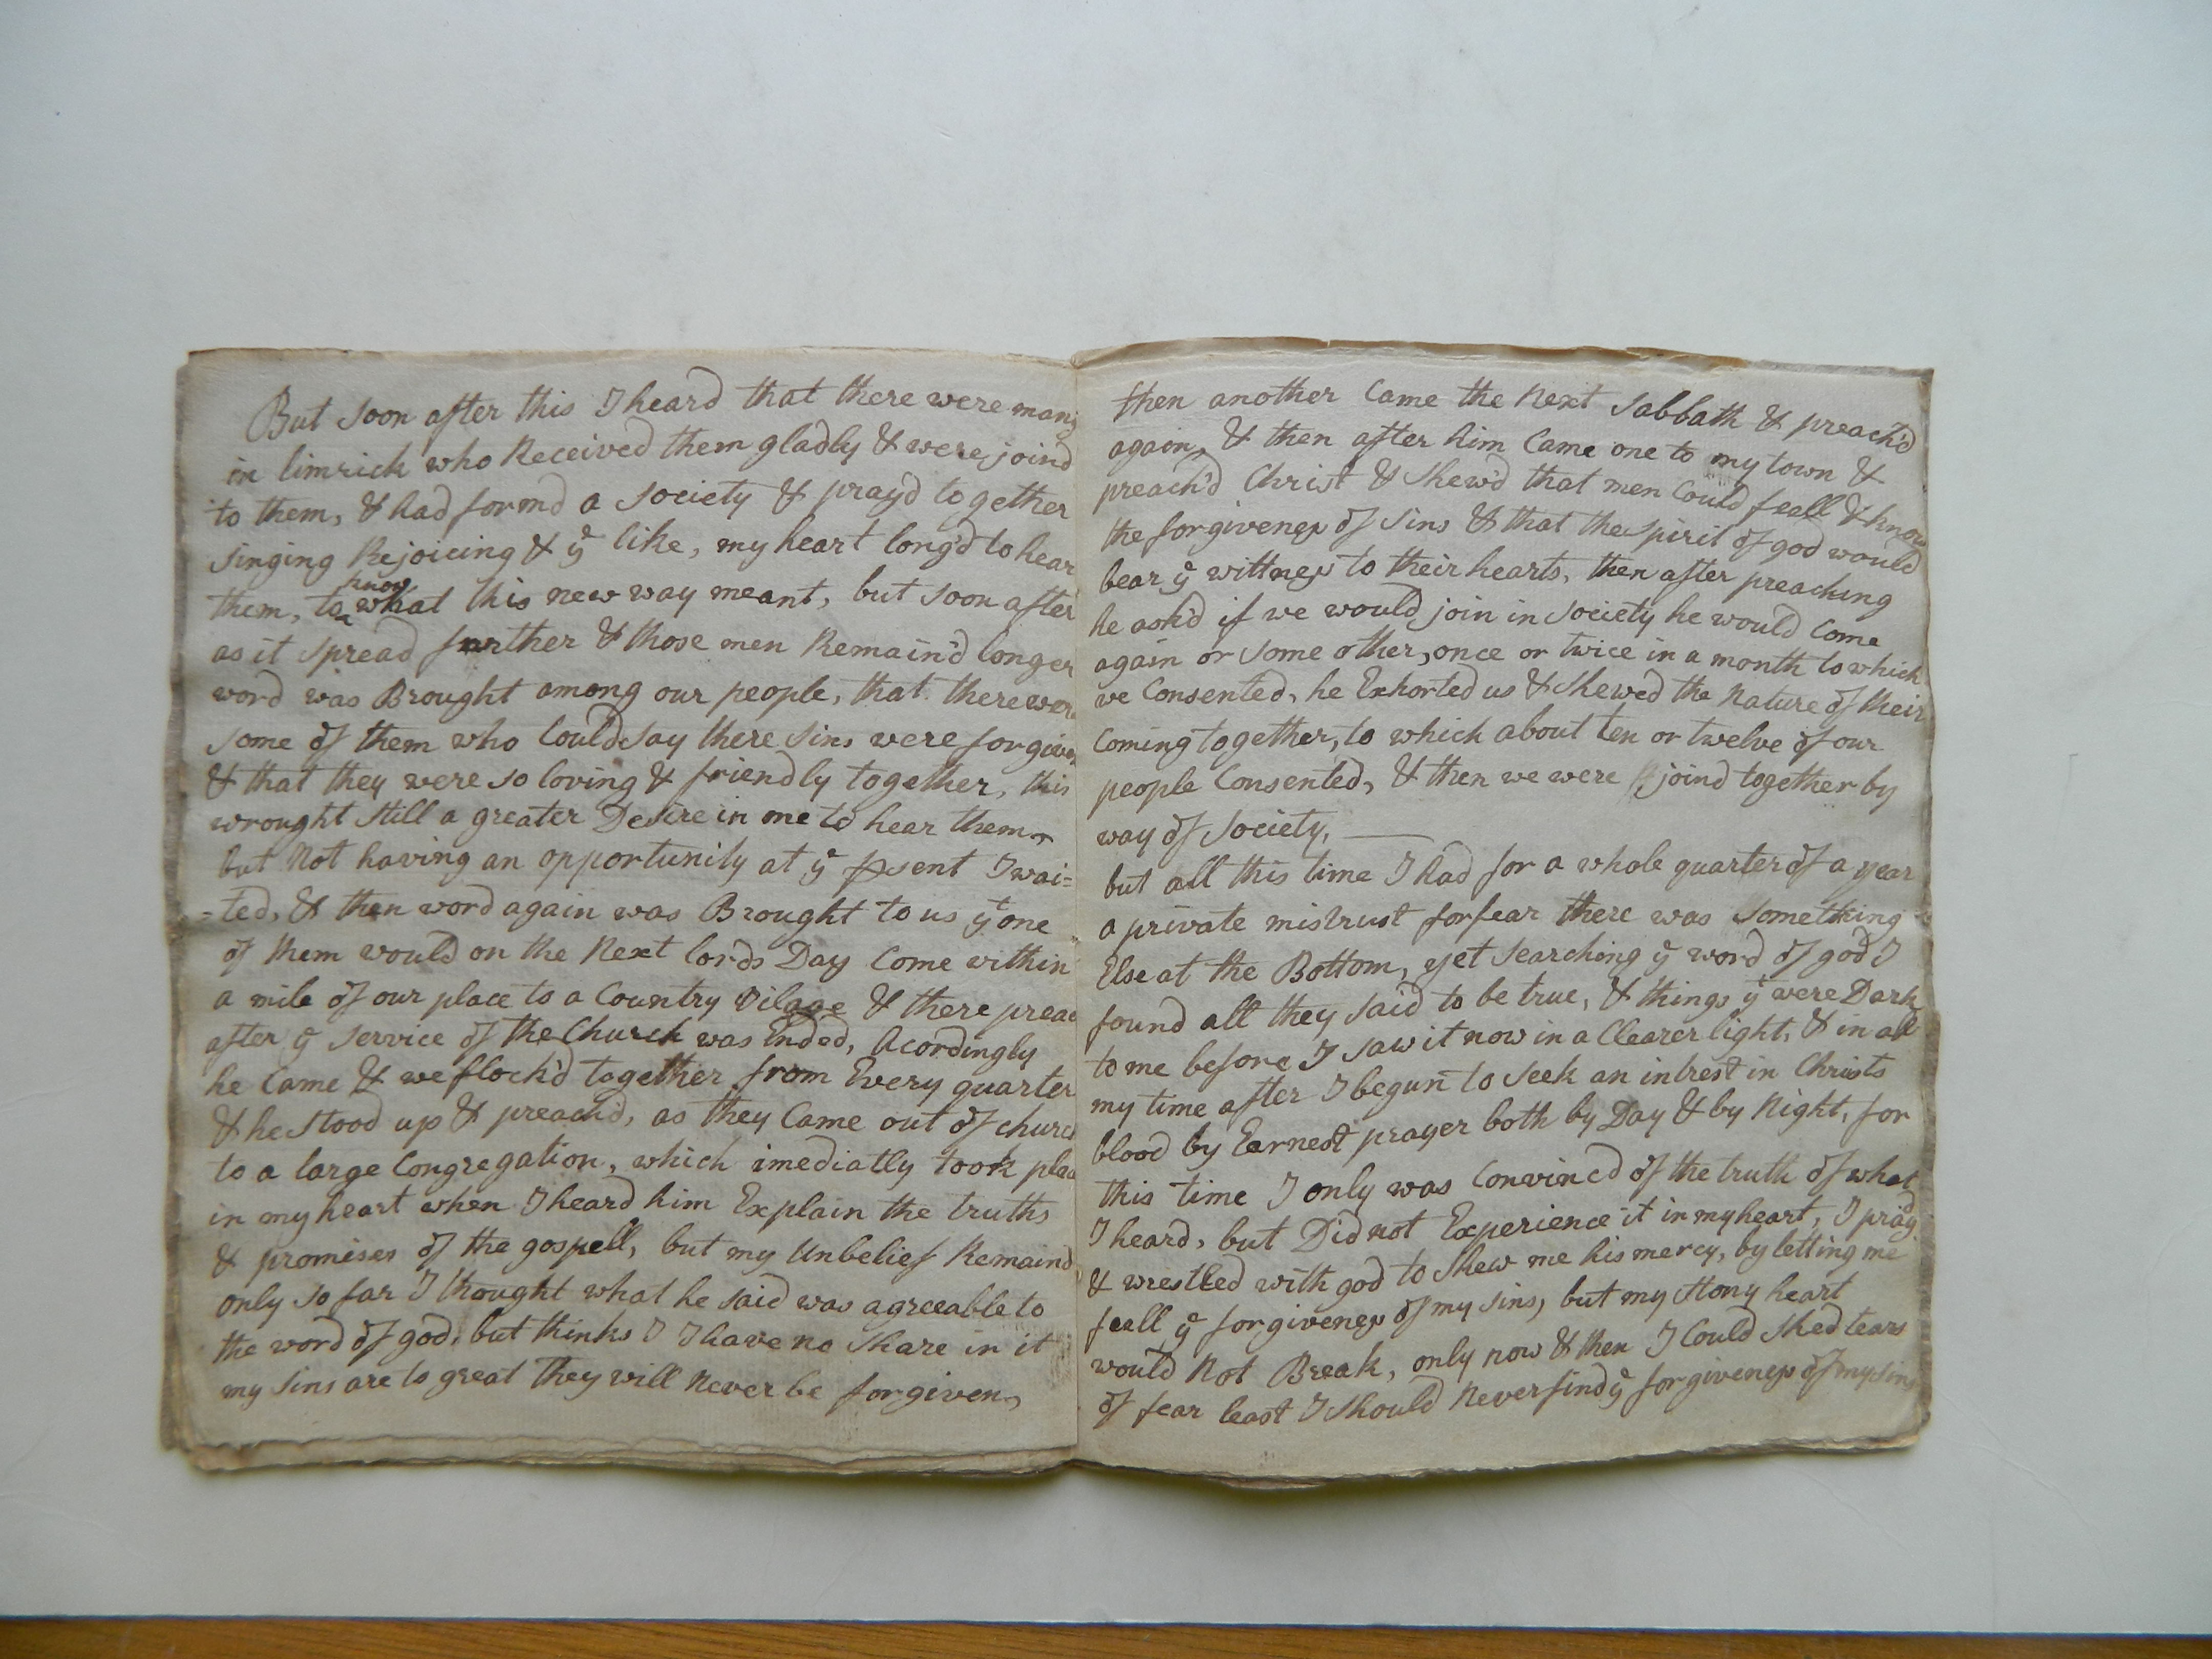 But soon after this I heard that there were many
in limrick who Received them gladly & were joind
to them, & had formd a society & pray'd together
singing Rejoicing & ye like, my heart long'd to hear
them, to know what this new way meant, but soon after
as it spread further & those men Remain'd longer
word was Brought among our people, that there were
some of them who Could say there sins were forgiven
& that they were so loving & friendly together, this
wrought still a greater Desire in me to hear them,
but Not having an opportunity at ye psent I wai=
=ted, & then word again was Brought to us yt one
of them would on the Next lords Day Come within
a mile of our place to a Country Vilage & there preac
after ye service of the Church was Ended, Acordingly
he Came & we flock'd together from Every quarter
& he stood up & preach'd, as they Came out of church
to a large Congregation, which imediatly took place
in my heart when I heard him Explain the truths
& promises of the gospell, but my Unbelief Remaind
only so far I thought what he said was agreeable to
the word of god, but thinks I I have no share in it
my sins are to great they will Never be forgiven,
then another Came the Next sabbath & preach'd
again, & then after him Came one to my town &
preach'd Christ & shew'd that men Could feall & know
the forgiveness of sins & that the spirit of god would
bear ye wittness to their hearts, then after preaching
he ask'd if we would join in society he would Come
again or some other, once or twice in a month to which
we Consented, he Exhorted us & shewed the Nature of their
Coming together, to which about ten or twelve of our
people Consented, & then we were joind together by
way of society,
but all this time I had for a whole quarter of a year
a private mistrust for fear there was something
Else at the Bottom, yet searching ye word of god I
found all they said to be true, & things yt were Dark
to me before I saw it now in a Clearer light, & in all
my time after I begun to seek an intrest in Christs
blood by Earnest prayer both by Day & by Night, for
this time I only was Convinc'd of the truth of what
I heard, but Did not Experience it in my heart, I prayd
& wrestled with god to shew me his mercy, by letting me
feall ye forgiveness of my sins, but my stony heart
would Not Break, only now & then I Could shed tears
of fear least I should Never find ye forgiveness of my sins